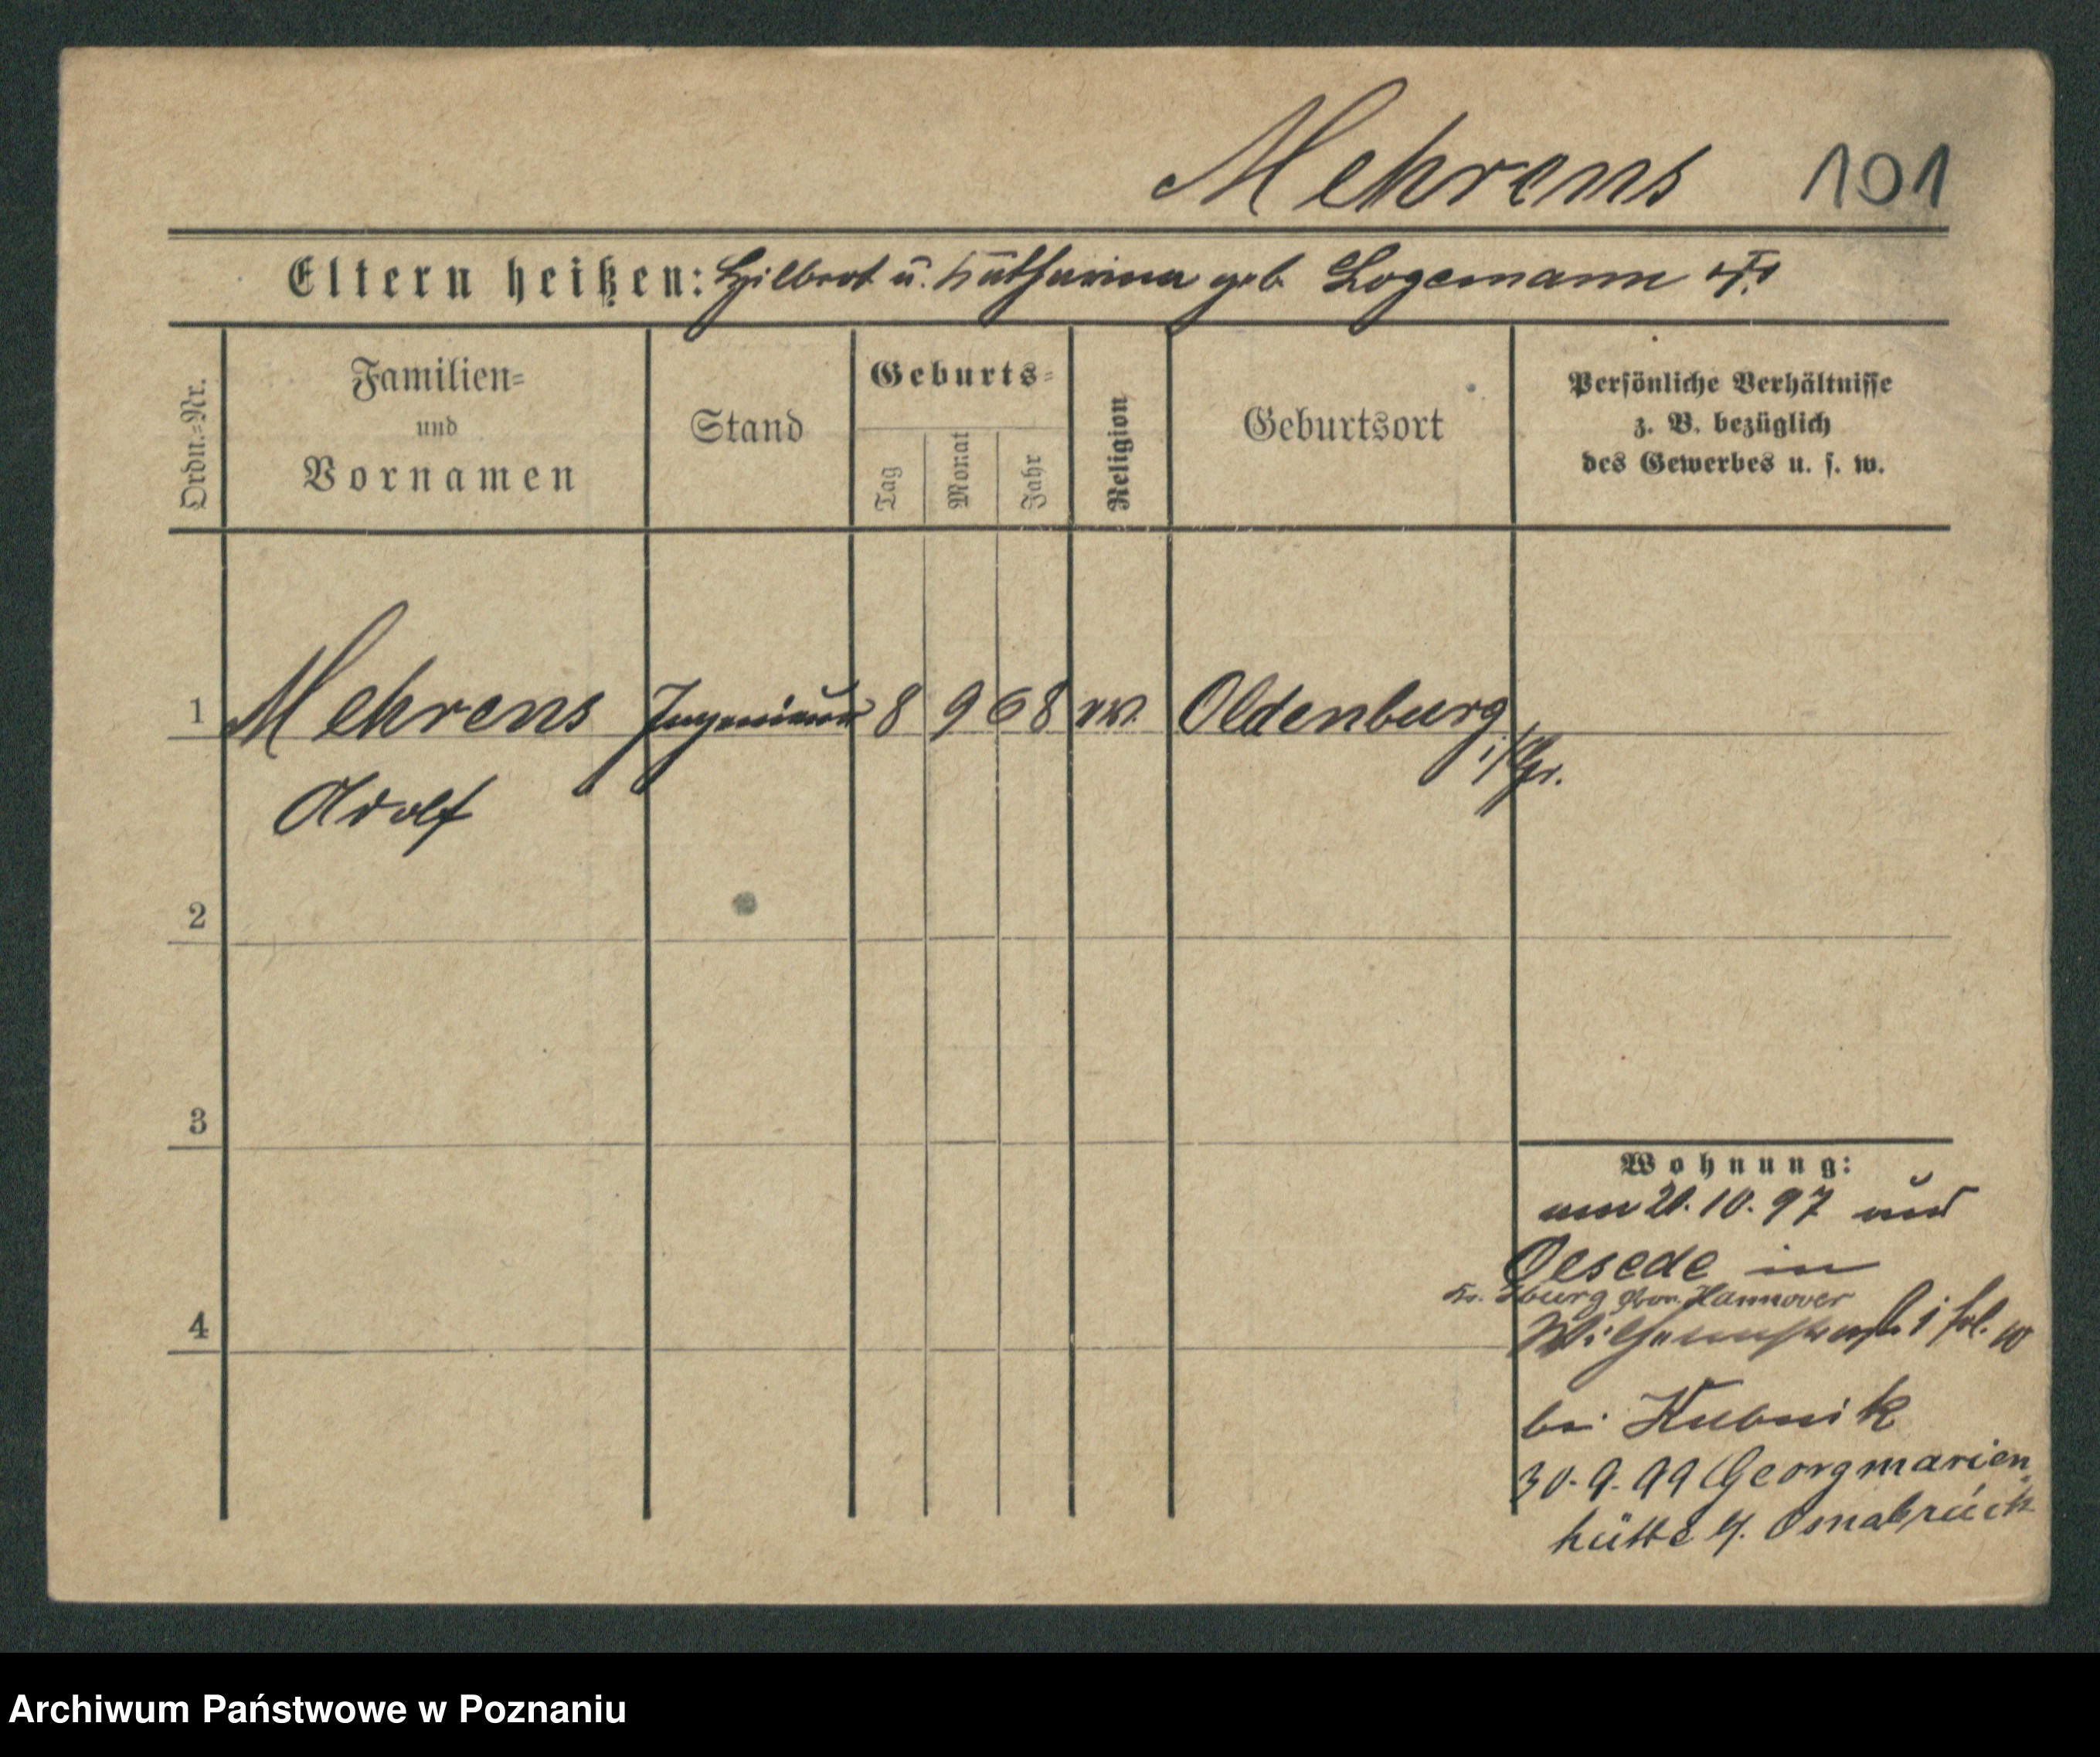 Mehrens 101
Eltern heißen: Hilbrot u. Katharina geb. Logemann
Ordn.=Nr.
Familien=
und
Vornamen
Stand
Geburts=
Tag
Monat
Jahr
Religion
Geburtsort
Persönliche Verhältnisse
z. B. bezüglich
des Gewerbes u. s. w.
1 Mehrens Ingenieur 8 9 68 ev. Oldenburg
i/Gr.
Adolf
2
3
4
Wohnung:
am 21.10.97 aus
Oesede in
Kr. Iburg Prov. Hannover
Wilhelmstraße
bei Kubnik
30.9.99 Georgmarien
hütte b/. Osnabrück
Archiwum Państwowe w Poznaniu